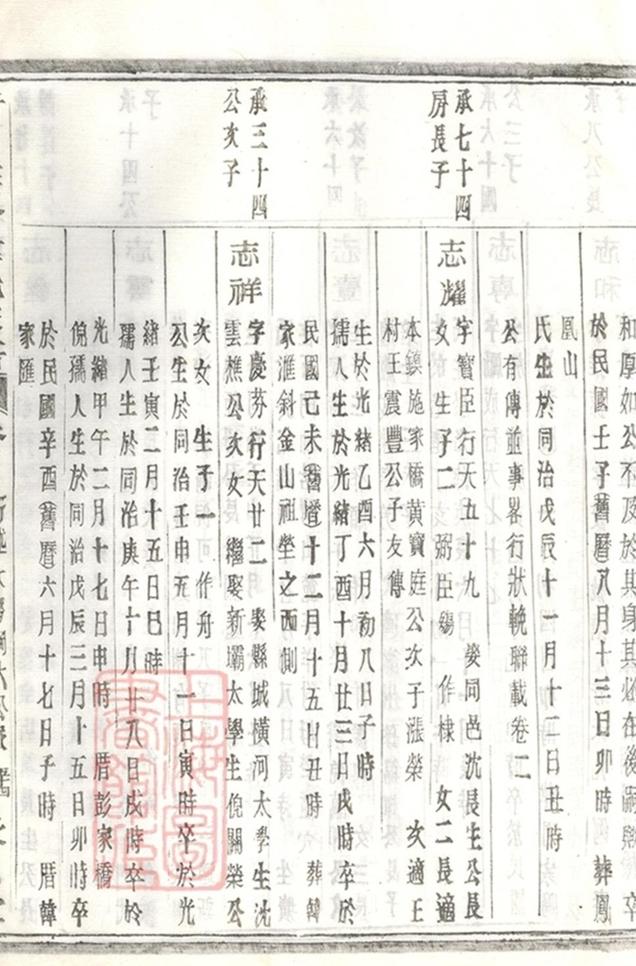 和厚如公不及於其身其必在後嗣歟卒
於民國壬子舊曆八月十三日卯時 葬鳳
凰山
氏生於同治戊辰十一月十二日丑時
公有傳並事畧行狀輓聯載卷二
承七十四
房長子
志耀
字寶臣行天五十九 娶同邑沈長生公長
女 生子二 弼臣錫 作棣 女二長適
本鎮施家橋黃寶庭公次子漲榮 次適王
村王震豐公子友傳
生於光緒乙酉六月初八日子時
孺人生於光緒丁酉十月廿三日戌時卒於
民國己未舊曆十二月十五日丑時 葬韓
家滙斜金山祖塋之西側
承三十四
公次子
志祥
字慶芬行天廿二 娶縣城橫河太學生沈
雲樵公次女 繼娶新壩太學生倪關榮公
次女 生子一 作舟
公生於同治壬申五月十一日寅時卒於光
緒壬寅二月十五日巳時
孺人生於同治庚午六月廿八日戌時卒於
光緒甲午二月十七日申時 厝彭家橋
倪孺人生於同治戊辰三月十五日卯時卒
於民國辛酉舊曆六月十七日子時 厝韓
家匯